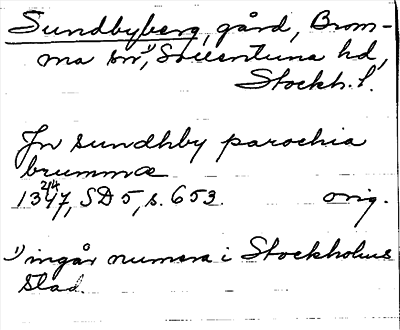 Sundbyberg, gård, Brom-
ma sn¹⁾, Sollentuna hd,
Stockh. l.
Jn sundhby parochia
brummæ
1347 24/4, SD 5, s. 653. orig.
¹⁾ ingår numera i Stockholms
stad.